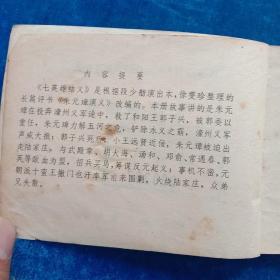 内容提要
《七英雄结义》是根据段少舫演出本，徐雯珍整理的
长篇评书《朱元璋演义》改编的。本册故事讲的是朱元
璋在投奔濠州义军途中，救了和阳王郭子兴，被郭委以
重任，朱元璋力解五河之危，铲除水火之霸，濠州义军
声威大振；郭子兴死后，小王远贤近佞，朱元璋被迫出
走陆家庄。与武殿章、胡大海、汤和、邓俞、常遇春、郭
英等歃血为盟，招兵买马，筹谋反元起义；事机不密，元
朝派十蛮王撤门也汗率军前来围剿，火烧陆家庄，众弟
兄失散。